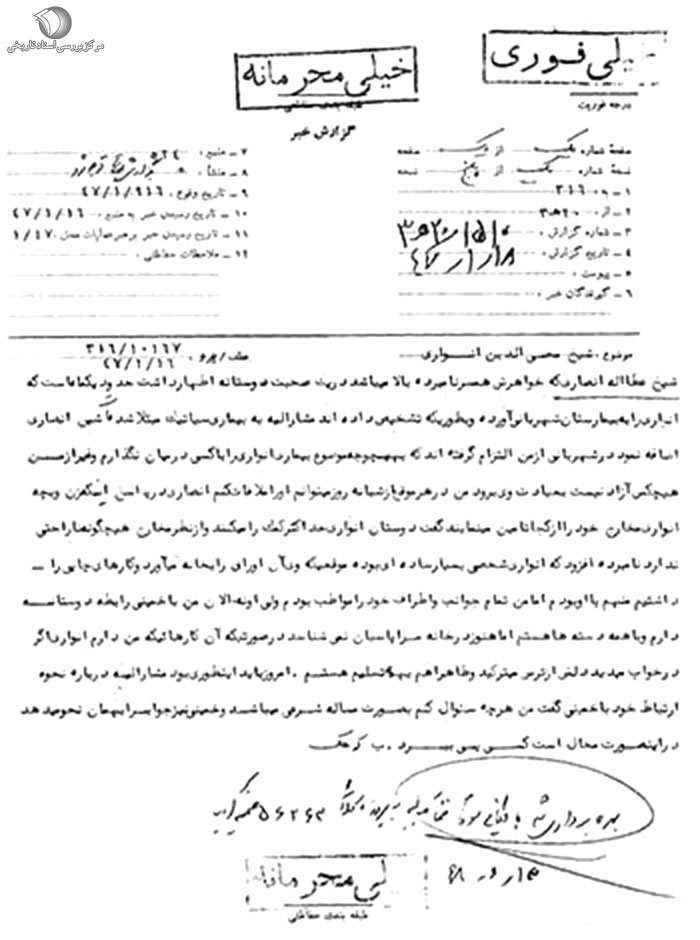 مرکز بررسی اسناد تاریخی
خیلی فوری
درجه فوریت
خیلی محرمانه
طبقه بندی حفاظتی
گزارش خبر
صفحه شماره یک از یک صفحه
نسخه شماره یک از پنج نسخه
۱ ـ به ۳۱۶
۲ ـ از ۲۰ﻫ۳
۳ ـ شماره گزارش
۴ ـ تاریخ گزارش
۵ ـ پیوست
۶ ـ گیرندگان خبر
۷ ـ منبع
۸ ـ منشأ
۹ ـ تاریخ وقوع
۱۰ ـ تاریخ رسیدن خبر به منبع ۴۷/۱/۱۶
۱۱ ـ تاریخ رسیدن خبر برهبر عملیات محل
۱۲ ـ ملاحظات حفاظتی
موضوع : شیخ محی الدین انواری
عطف/پیرو ۳۱۶/۱۰۱۶۷
۴۷/۱/۱۶
شیخ عطااله انصاری که خواهرش همسر نامبرده بالا میباشد در یک صحبت دوستانه اظهار داشت حدود یکماه است که
انواری را به بیمارستان شهربانی آورده و بطوریکه تشخیص داده اند مشارالیه به بیماری سیاتیک مبتلا شده شیخ انصاری
اضافه نمود در شهربانی از من التزام گرفته اند که بهیچوجه موضوع بیمار انواری را با کسی در میان نگذارم و غیر از من
هیچکس آزاد نیست بعیادت وی برود من در هر موقع از شبانه روز میتوانم او را ملاقات کنم انصاری در پاسخ اینکه زن و بچه
انواری مخارج خود را از کجا تامین مینمایند گفت دوستان انواری حداکثر کمک را میکنند و از نظر مخارج هیچگونه ناراحتی
ندارد نامبرده افزود که انواری شخصی بسیار ساده ای بوده موقعیکه وی آن اورای را بخانه میآورد و کارهای چاپی را ـ
داشتیم منهم با او بودم اما من تمام جوانب و اطراف خود را مواظب بودم ولی او نه الان من با خمینی رابطه دوستانه
دارم و با همه دسته ها هستم اما هنوز در خانه مرا پاسبان نمی شناسد در صورتیکه آن کارهائیکه من دارم انواری اگر
در خواب میدید دلش از ترس میترکید و ظاهرا هم بهمه تسلیم هستیم . امروز باید اینطوری بود مشارالیه درباره نحوه
ارتباط خود با خمینی گفت من هرچه سئوال کنم بصورت مساله شرعی میباشد و خمینی نیز جواب مرا بهمان نحو میدهد
در اینصورت محال است کسی پی ببرد . ب کوچک
بهره برداری شد
خیلی محرمانه
طبقه بندی حفاظتی